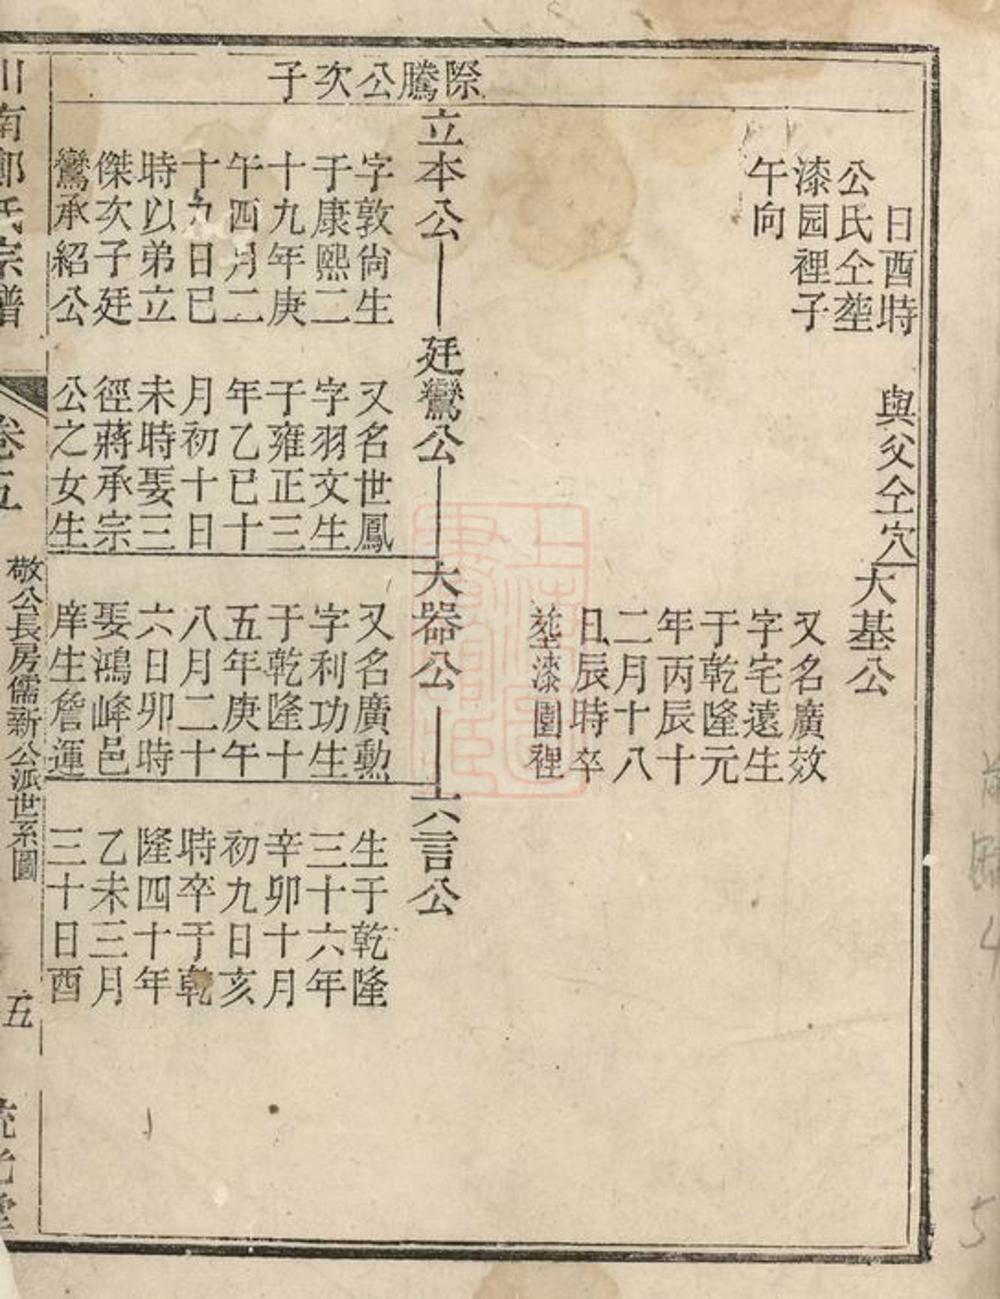 際騰公次子
日酉時
公氏仝塟
漆园裡子
午向
與父仝穴
大基公
又名廣效
字宅遠生
于乾隆元
年丙辰十
二月十八
日辰時卒
塟漆園裡
立本公
字敦尙生
于康熙二
十九年庚
午四月二
十九日巳
時以弟立
傑次子廷
鸞承紹公
廷鸞公
又名世鳳
字羽文生
于雍正三
年乙巳十
月初十日
未時娶三
徑蔣承宗
公之女生
大器公
又名廣勲
字利功生
于乾隆十
五年庚午
八月二十
六日卯時
娶鴻峰邑
庠生詹運
六言公
生于乾隆
三十六年
辛卯十月
初九日亥
時卒于乾
隆四十年
乙未三月
三十日酉
川南鄭氏宗譜
卷五
敬公長房儒新公派世系圖
五
5